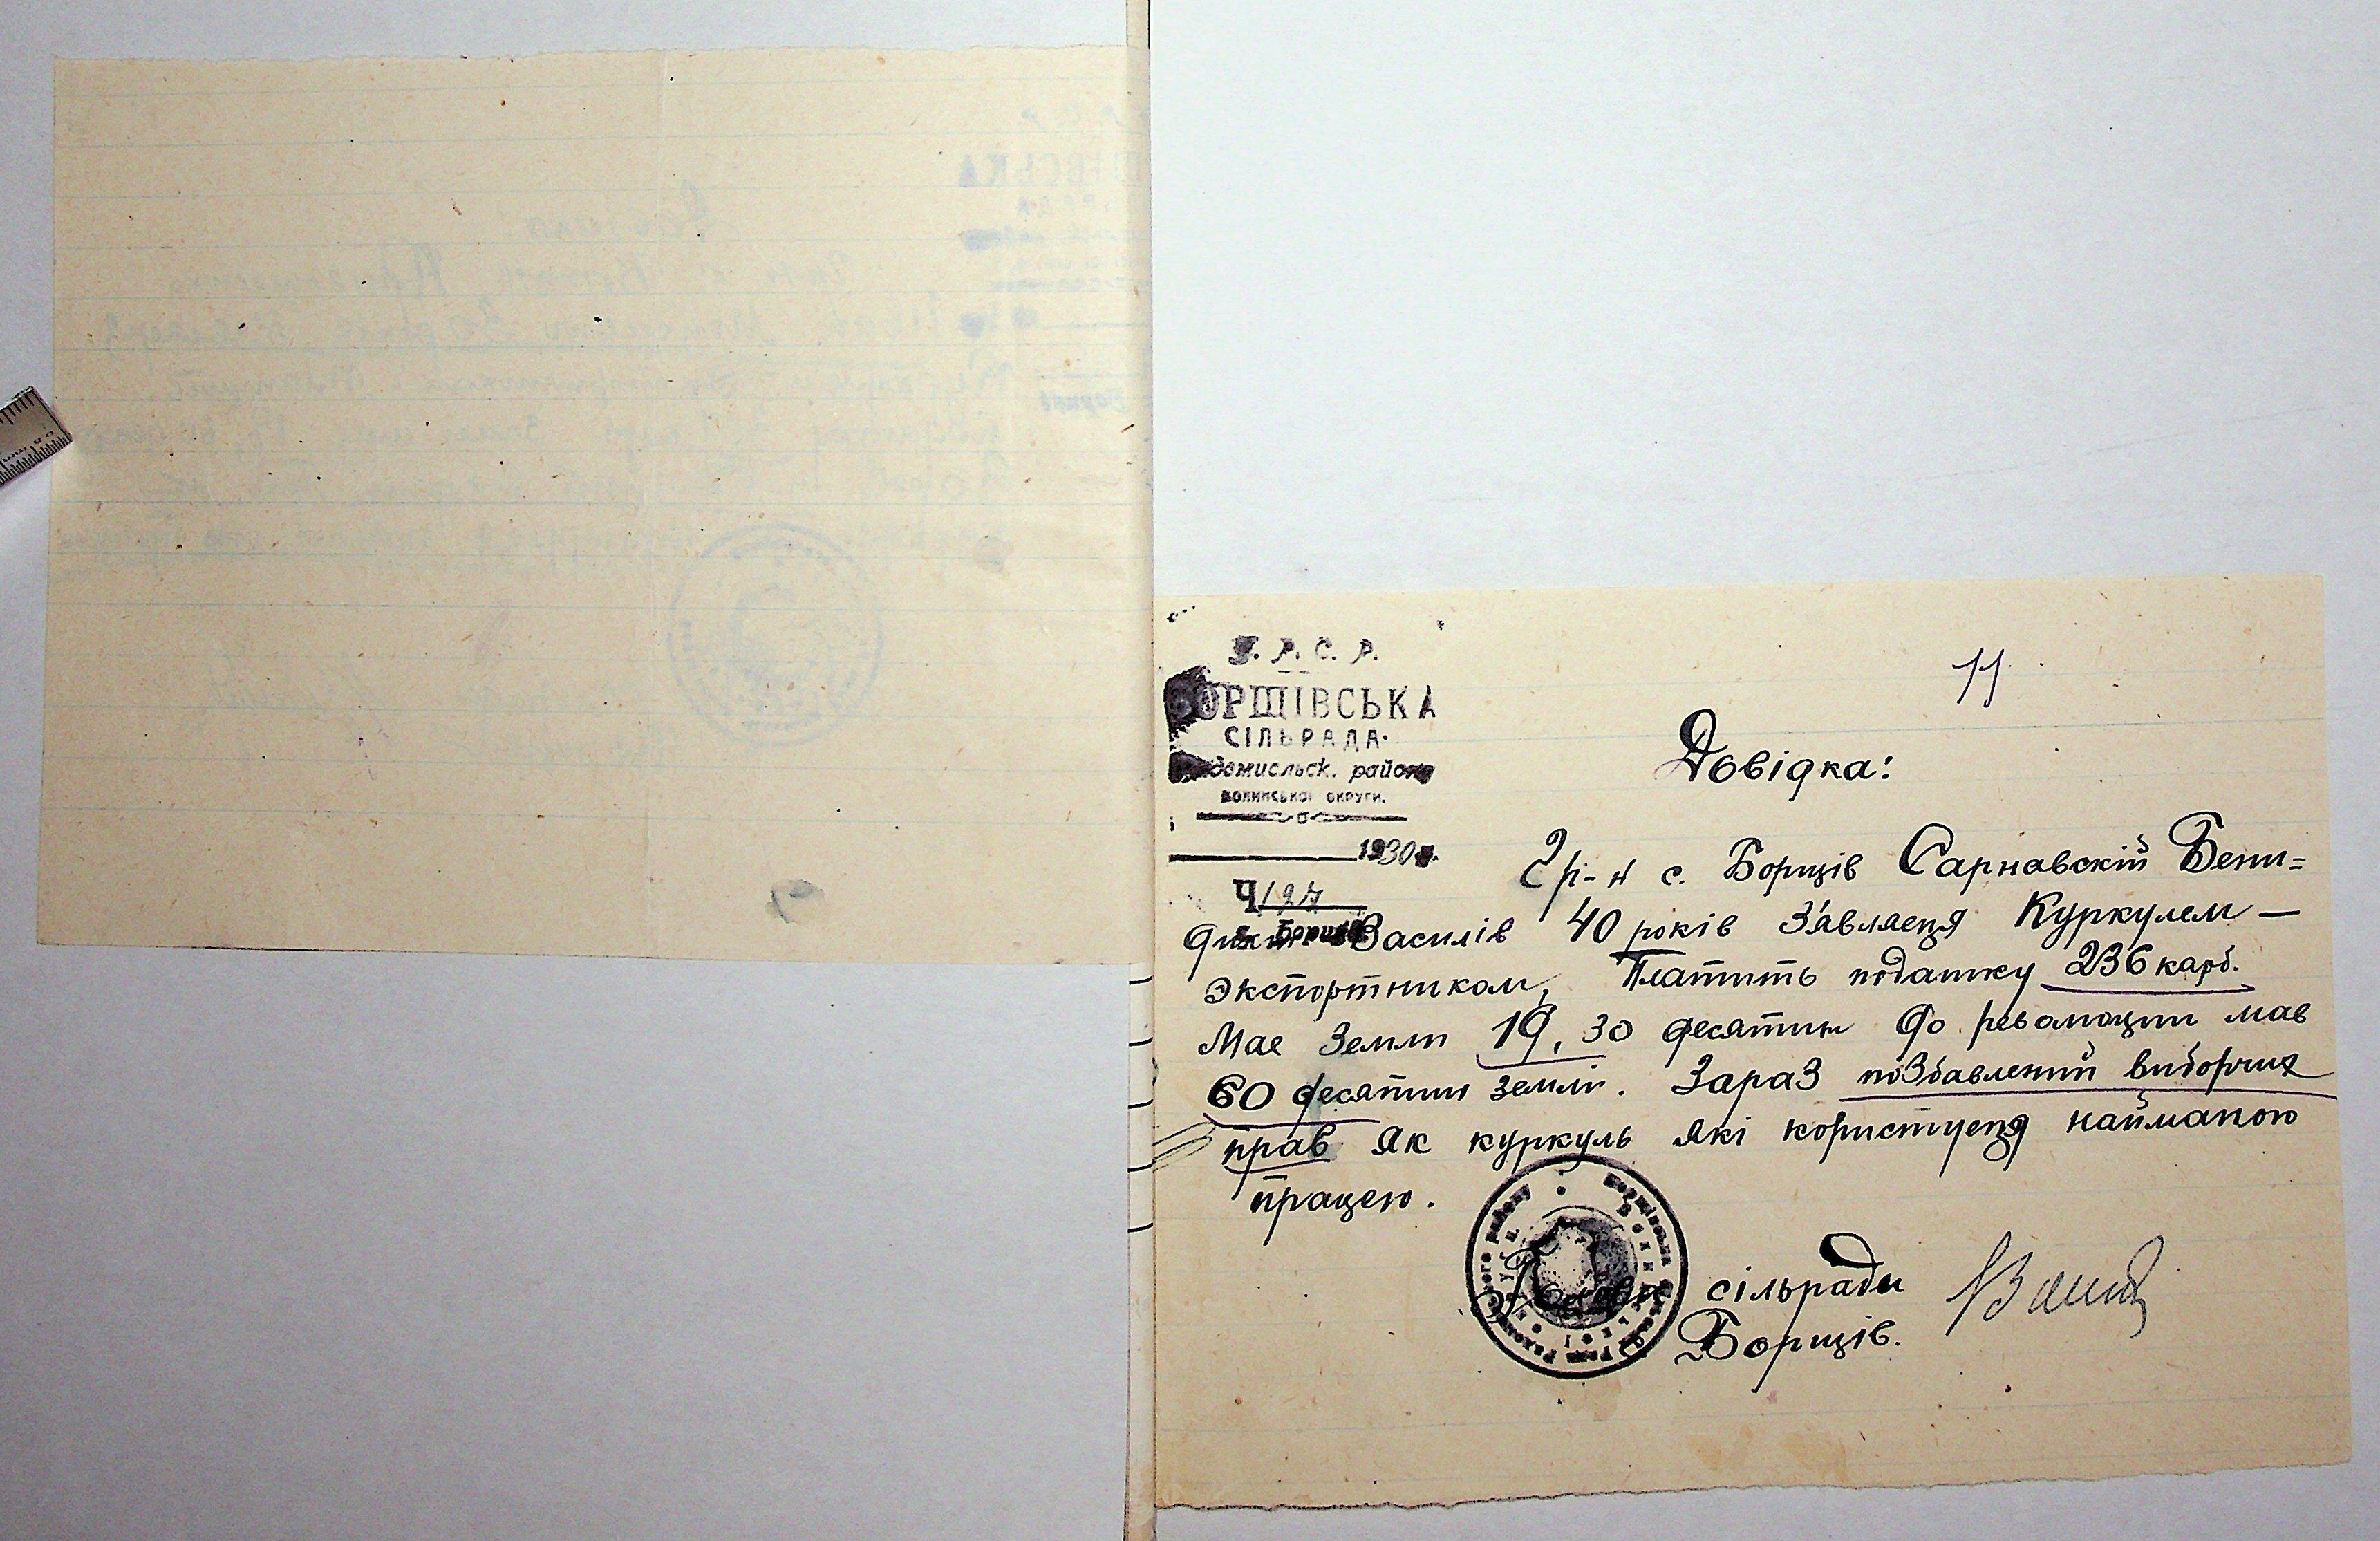 У. Р. С. Р.
БОРЩІВСЬКА
СІЛЬРАДА.
домисльск. району
волинської округи.
1930 р.
Ч 127
с. Борщів
11
Довідка:
Гр-н с. Борщів Сарнавскій Бени=
дикт Василів 40 років З'авляеця Куркулем —
экспортником, Платить податку 236 карб.
Мае Земли 19,30 десятин До революции мав
60 десятин землі. Зараз позбавлений виборчих
прав як куркуль які користуеця найманою
працею.
Голова сільради
Борщів.